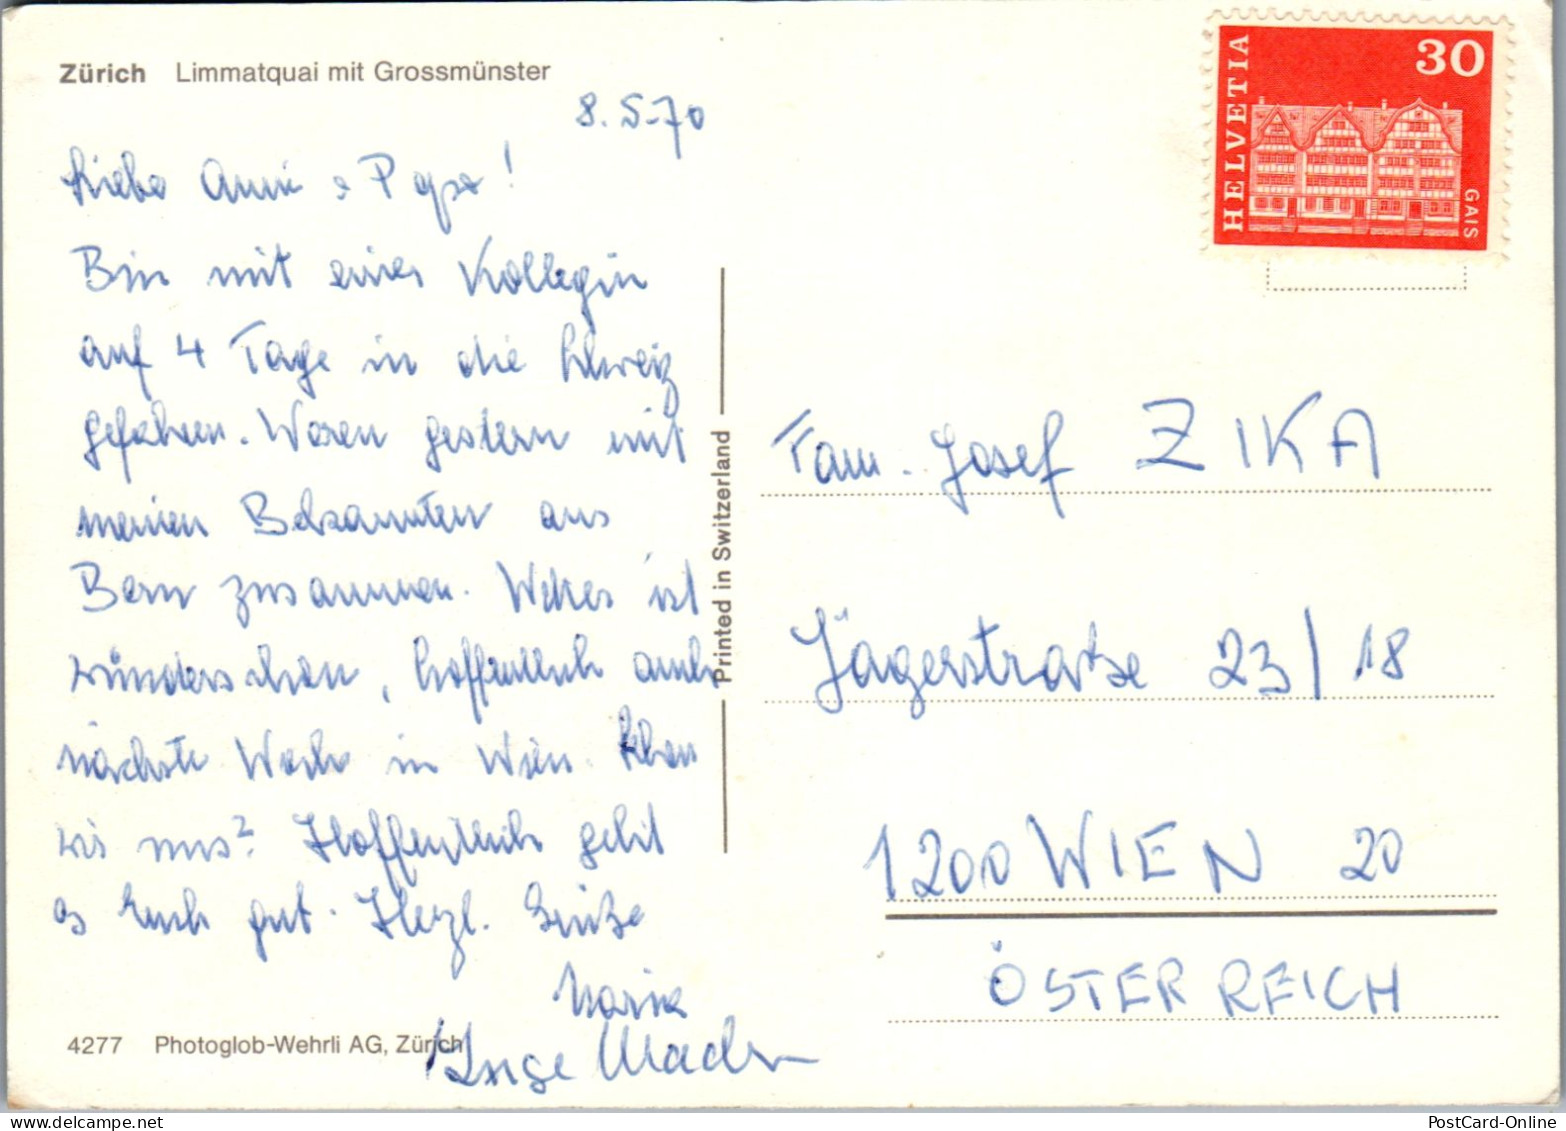 Zürich Limmatquai mit Grossmünster
8.5.70
Liebe Anni + Papa!
Bin mit einer Kollegin
auf 4 Tage in die Schweiz
gefahren. Waren gestern mit
meinen Bekannten aus
Bern zusammen. Wetter ist
wunderschön, hoffentlich auch
nächste Woche in Wien. Sehen
wir uns? Hoffentlich geht
es Euch gut. Herzl. Grüße
Maria
Inge
4277 Photoglob-Wehrli AG, Zürich
Printed in Switzerland
HELVETIA
30
GAIS
Fam. Josef ZIKA
Jägerstraße 23/18
1200 WIEN 20
ÖSTERREICH
PostCard-Online